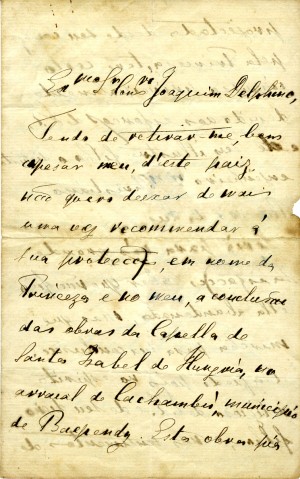 Ex.mo Sr. Cons.ro Joaquim Delphino,
Tendo de retirar-me, bem a
apesar meu, d'este paiz,
não quero deixar de mais
uma vez recommendar á
sua protecção, em nome da
Princeza e no meu, a conclusão
das obras da Capella de
Santa Izabel de Hungria, no
arraial de Cachambú, municipio
de Baependy. Esta obra pia